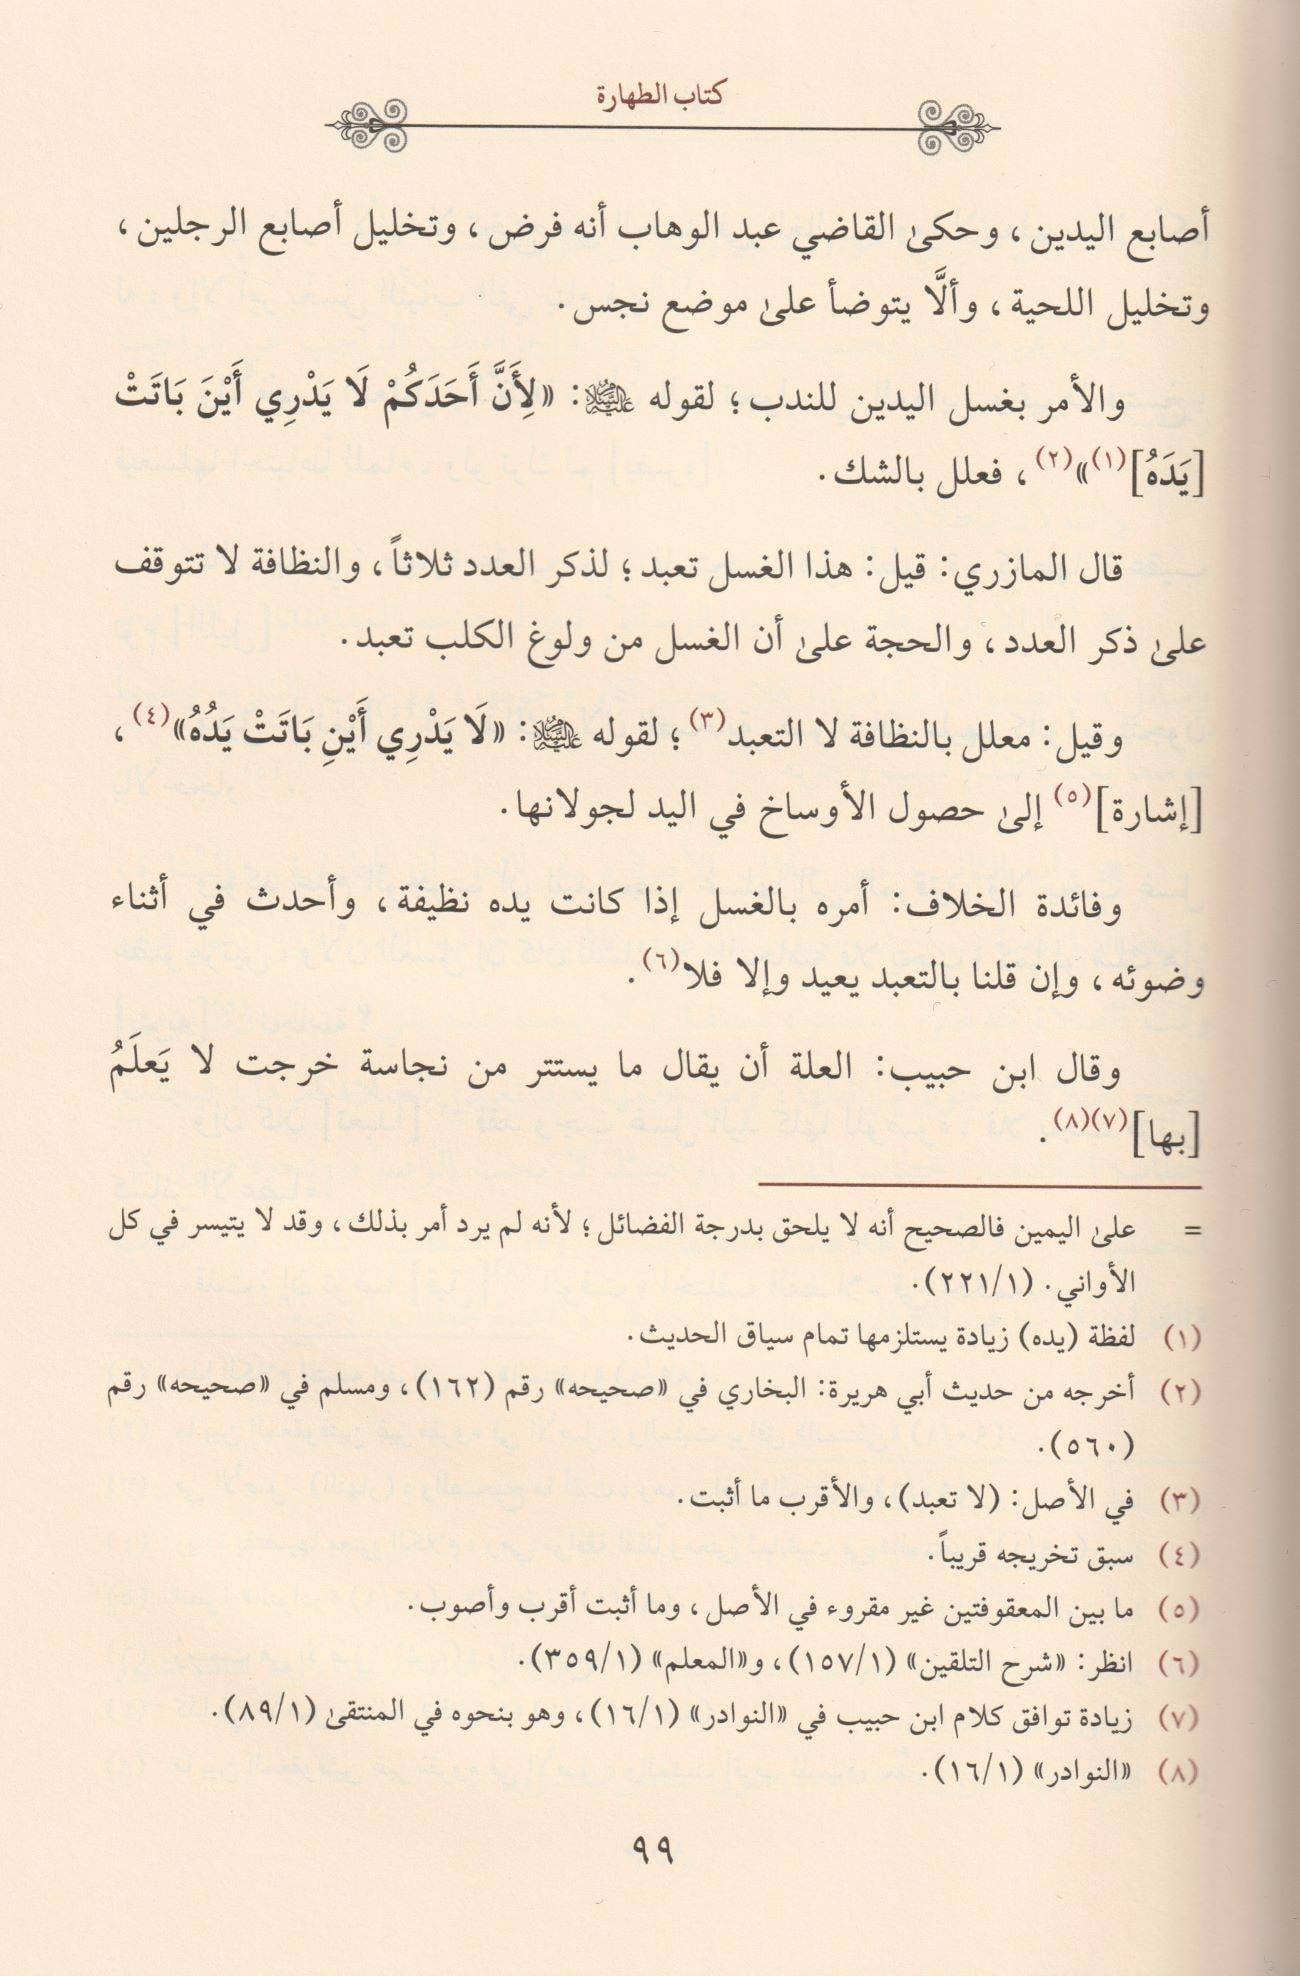 كتاب الطهارة
أصابع اليدين، وحكىٰ القاضي عبد الوهاب أنه فرض، وتخليل أصابع الرجلين،
وتخليل اللحية، وألَّا يتوضأ علىٰ موضع نجس.
والأمر بغسل اليدين للندب؛ لقوله عليه السلام: «لِأَنَّ أَحَدَكُمْ لَا يَدْرِي أَيْنَ بَاتَتْ
[يَدَهُ](١)»(٢)، فعلل بالشك.
قال المازري: قيل: هذا الغسل تعبد؛ لذكر العدد ثلاثاً، والنظافة لا تتوقف
علىٰ ذكر العدد، والحجة علىٰ أن الغسل من ولوغ الكلب تعبد.
وقيل: معلل بالنظافة لا التعبد(٣)؛ لقوله عليه السلام: «لَا يَدْرِي أَيْنِ بَاتَتْ يَدُهُ»(٤)،
[إشارة](٥) إلىٰ حصول الأوساخ في اليد لجولانها.
وفائدة الخلاف: أمره بالغسل إذا كانت يده نظيفة، وأحدث في أثناء
وضوئه، وإن قلنا بالتعبد يعيد وإلا فلا(٦).
وقال ابن حبيب: العلة أن يقال ما يستتر من نجاسة خرجت لا يَعلَمُ
[بها](٧)(٨).
= علىٰ اليمين فالصحيح أنه لا يلحق بدرجة الفضائل؛ لأنه لم يرد أمر بذلك، وقد لا يتيسر في كل
الأواني. (٢٢١/١).
(١) لفظة (يده) زيادة يستلزمها تمام سياق الحديث.
(٢) أخرجه من حديث أبي هريرة: البخاري في «صحيحه» رقم (١٦٢)، ومسلم في «صحيحه» رقم
(٥٦٠).
(٣) في الأصل: (لا تعبد)، والأقرب ما أثبت.
(٤) سبق تخريجه قريباً.
(٥) ما بين المعقوفتين غير مقروء في الأصل، وما أثبت أقرب وأصوب.
(٦) انظر: «شرح التلقين» (١٥٧/١)، و«المعلم» (٣٥٩/١).
(٧) زيادة توافق كلام ابن حبيب في «النوادر» (١٦/١)، وهو بنحوه في المنتقىٰ (٨٩/١).
(٨) «النوادر» (١٦/١).
٩٩